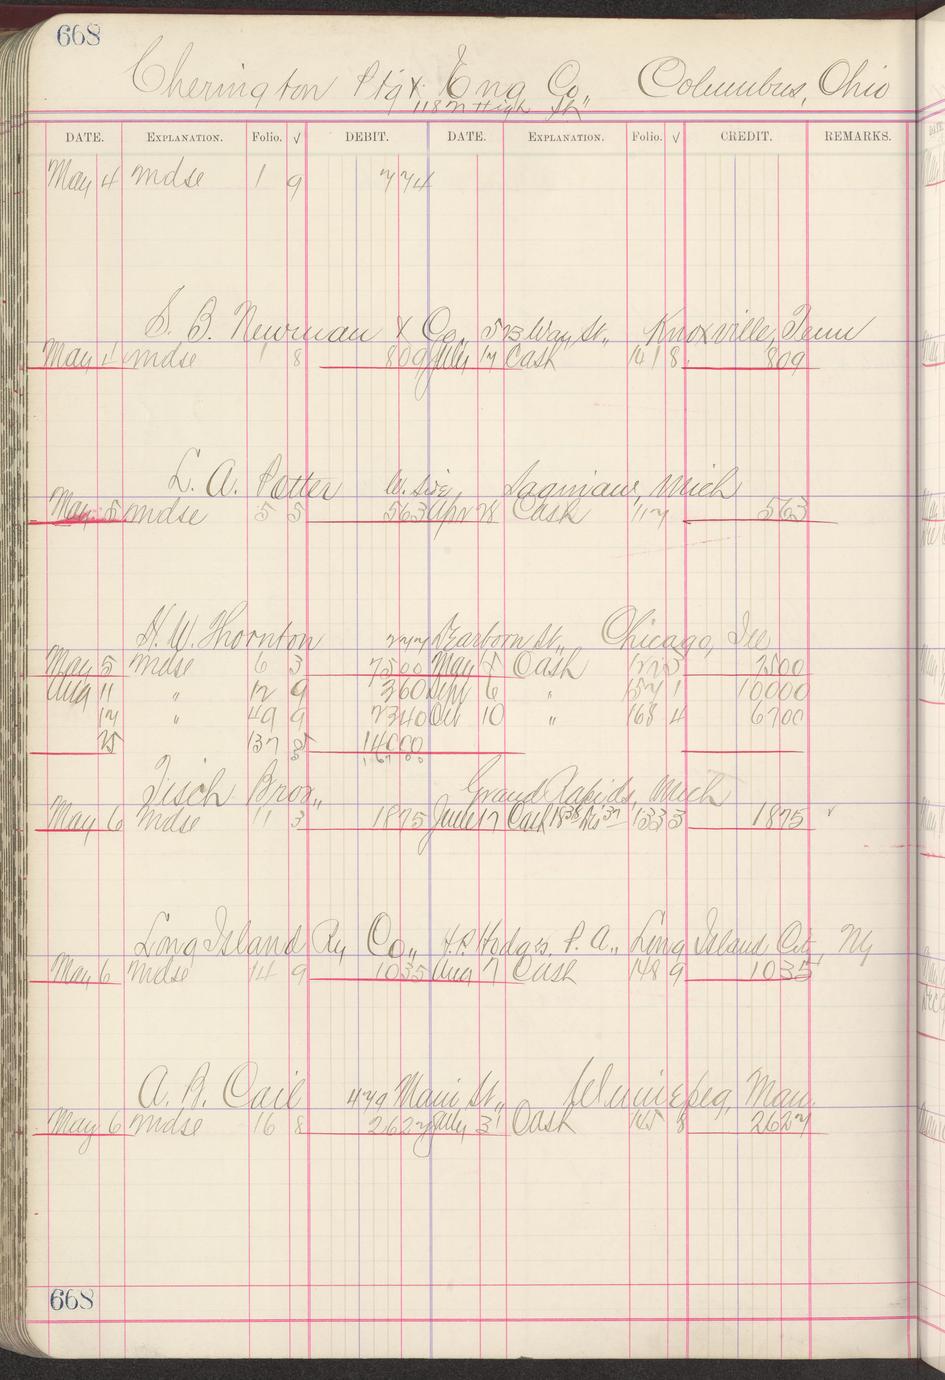 668
Cherington Ptg & Eng Co, Columbus, Ohio
118 N High St,,
DATE. EXPLANATION. Folio. √ DEBIT. DATE. EXPLANATION. Folio. √ CREDIT. REMARKS.
May 4 mdse 1 9 774
S. B. Newman & Co, St,, Knoxville, Tenn
May 4 mdse 1 8 809 July 17 Cash 141 8 809
L. A. Potter W. Side, Saginaw, Mich
May 5 mdse 5 5 563 Apr 28 Cash 117 563
H. W. Thornton 277 Dearborn St,, Chicago, Ill
May 5 mdse 6 3 7500 May Cash 122 3 7500
Aug 11 " 12 9 360 Sept 6 " 157 1 10000
17 " 49 9 2340 Oct 10 " 168 4 6700
25 137 8 14000
16700
Tisch Bros,, Grand Rapids, Mich
May 6 mdse 11 3 1875 June 17 Cash 1838 Dis 37 133 3 1875 √
Long Island Ry Co,, H. P. Hodges, P. A,, Long Island City, Ny
May 6 mdse 14 9 1035 Aug 7 Cash 148 9 1035
A. B. Cail 479 Main St,, Winnepeg, Man.
May 6 mdse 16 8 2627 July 31 Cash 145 8 2627
668